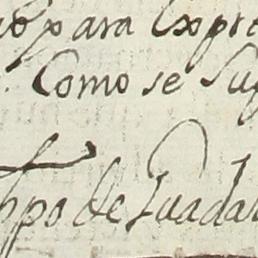 para Expre
Como se Sup
ppo de Guadal